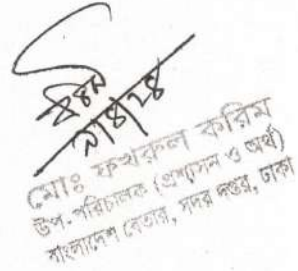 মোঃ ফখরুল করিম
উপ- পরিচালক (প্রশাসন ও অর্থ)
বাংলাদেশ বেতার, সদর দপ্তর, ঢাকা